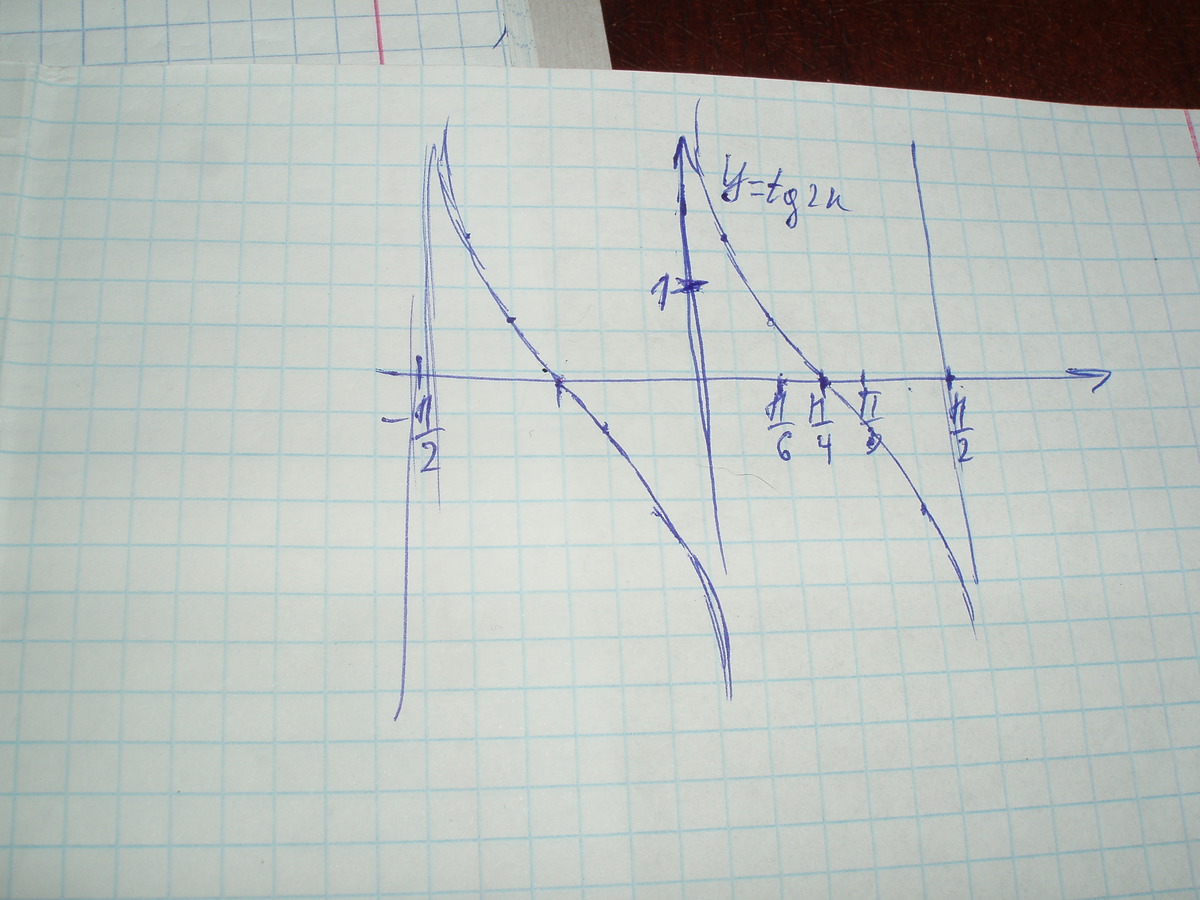 y=tg2x
1
-π/2
π/6 π/4 π/3 π/2